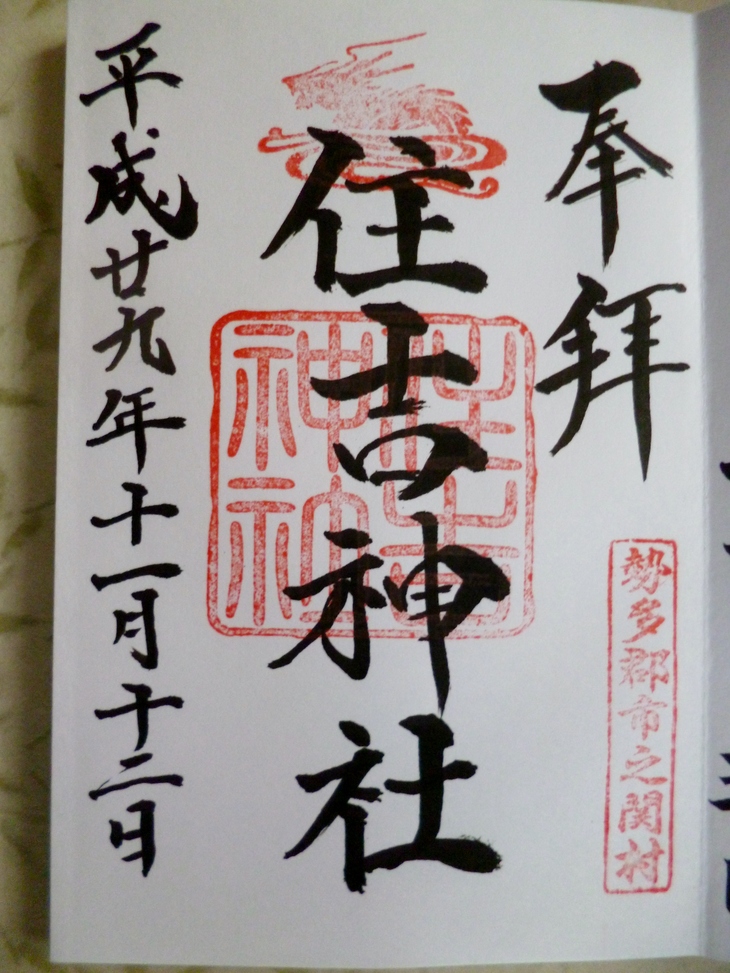 奉拝
勢多郡市之関村
住吉神社
平成廿九年十一月十二日